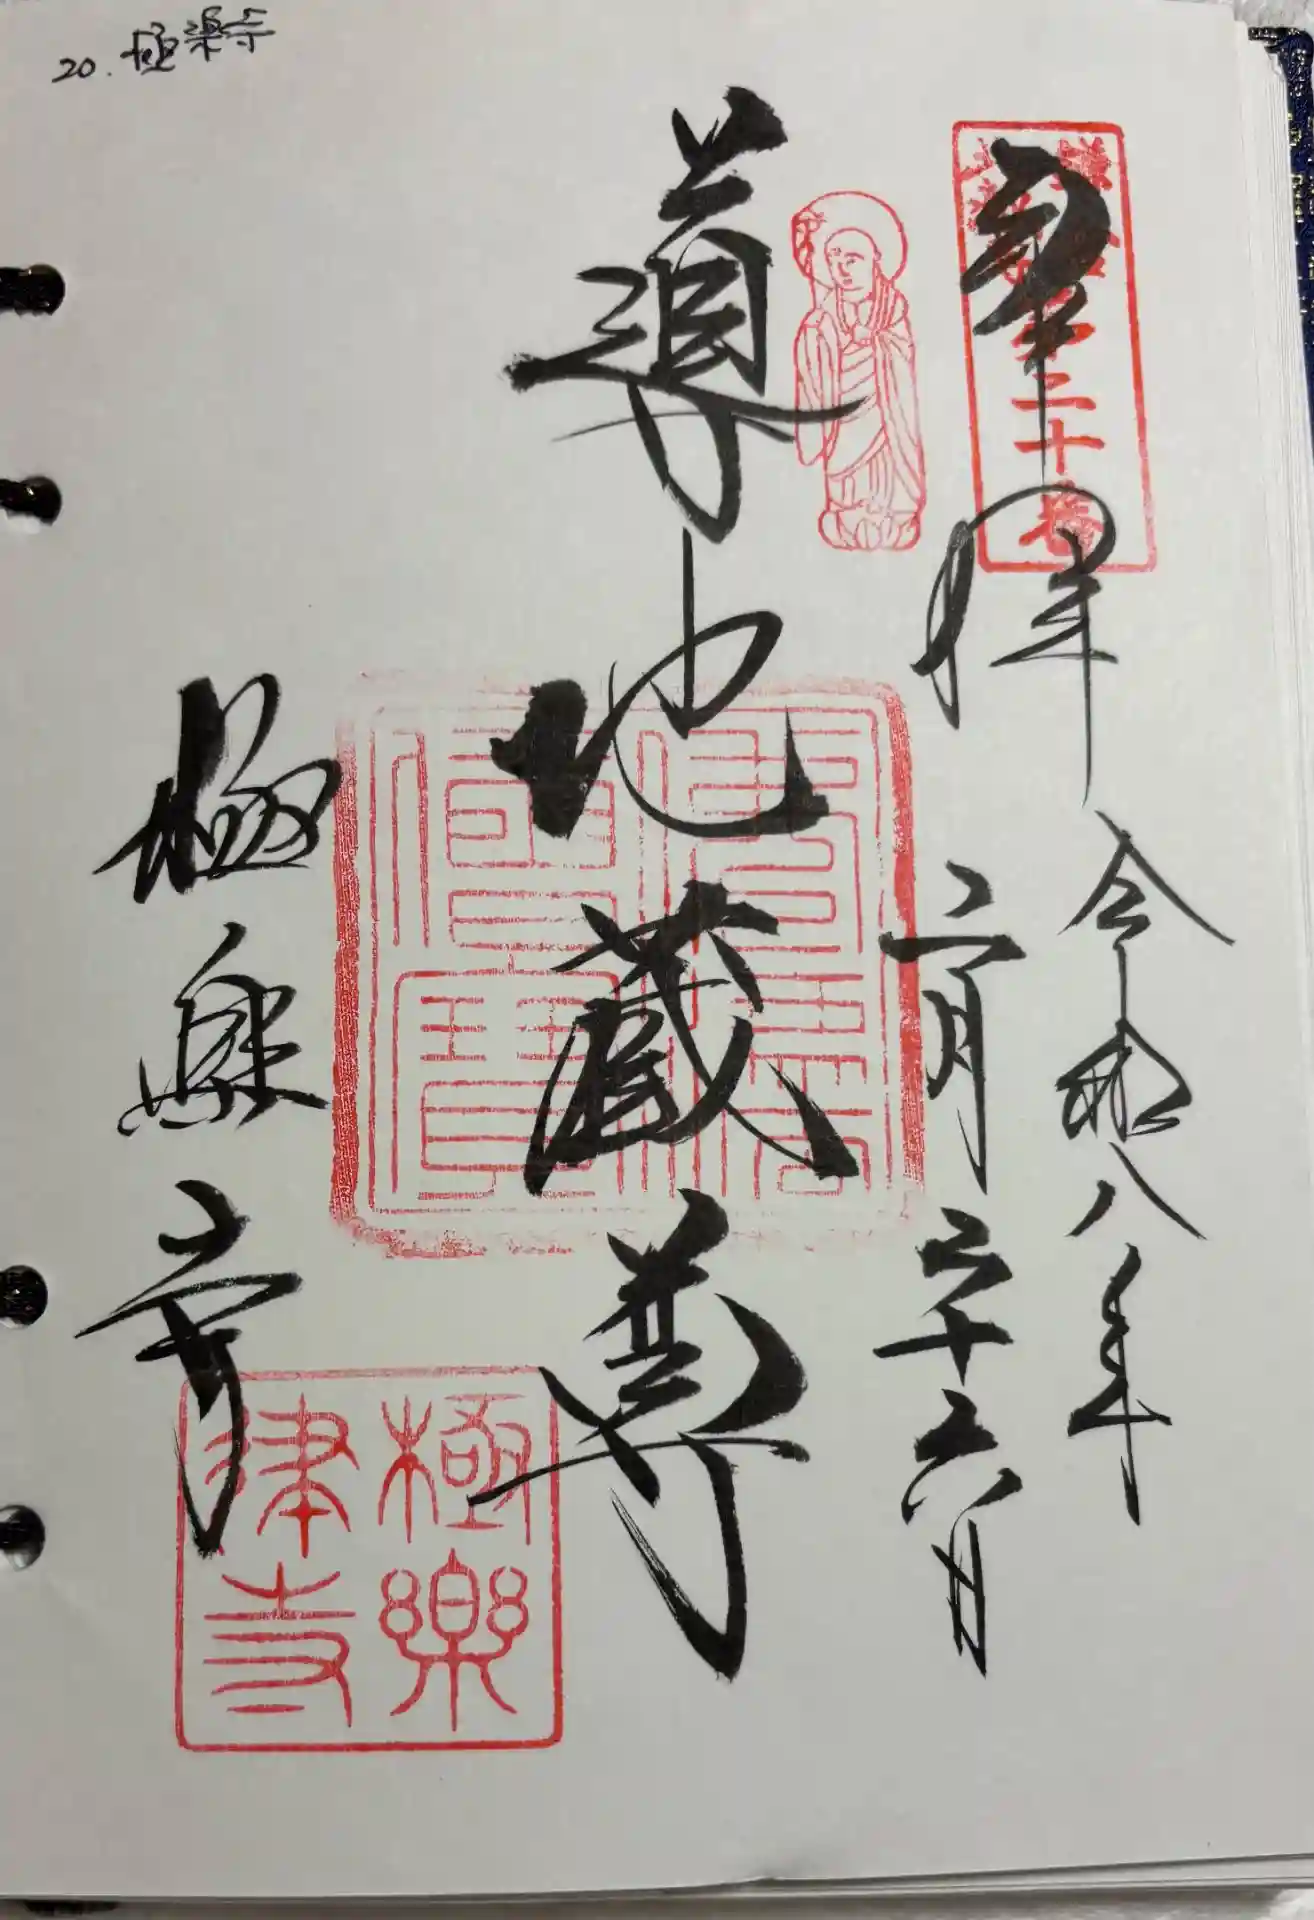 20. 極楽寺
奉拝
令和八年
二月二十六日
導地蔵尊
極楽寺
第二十番
極樂
律寺